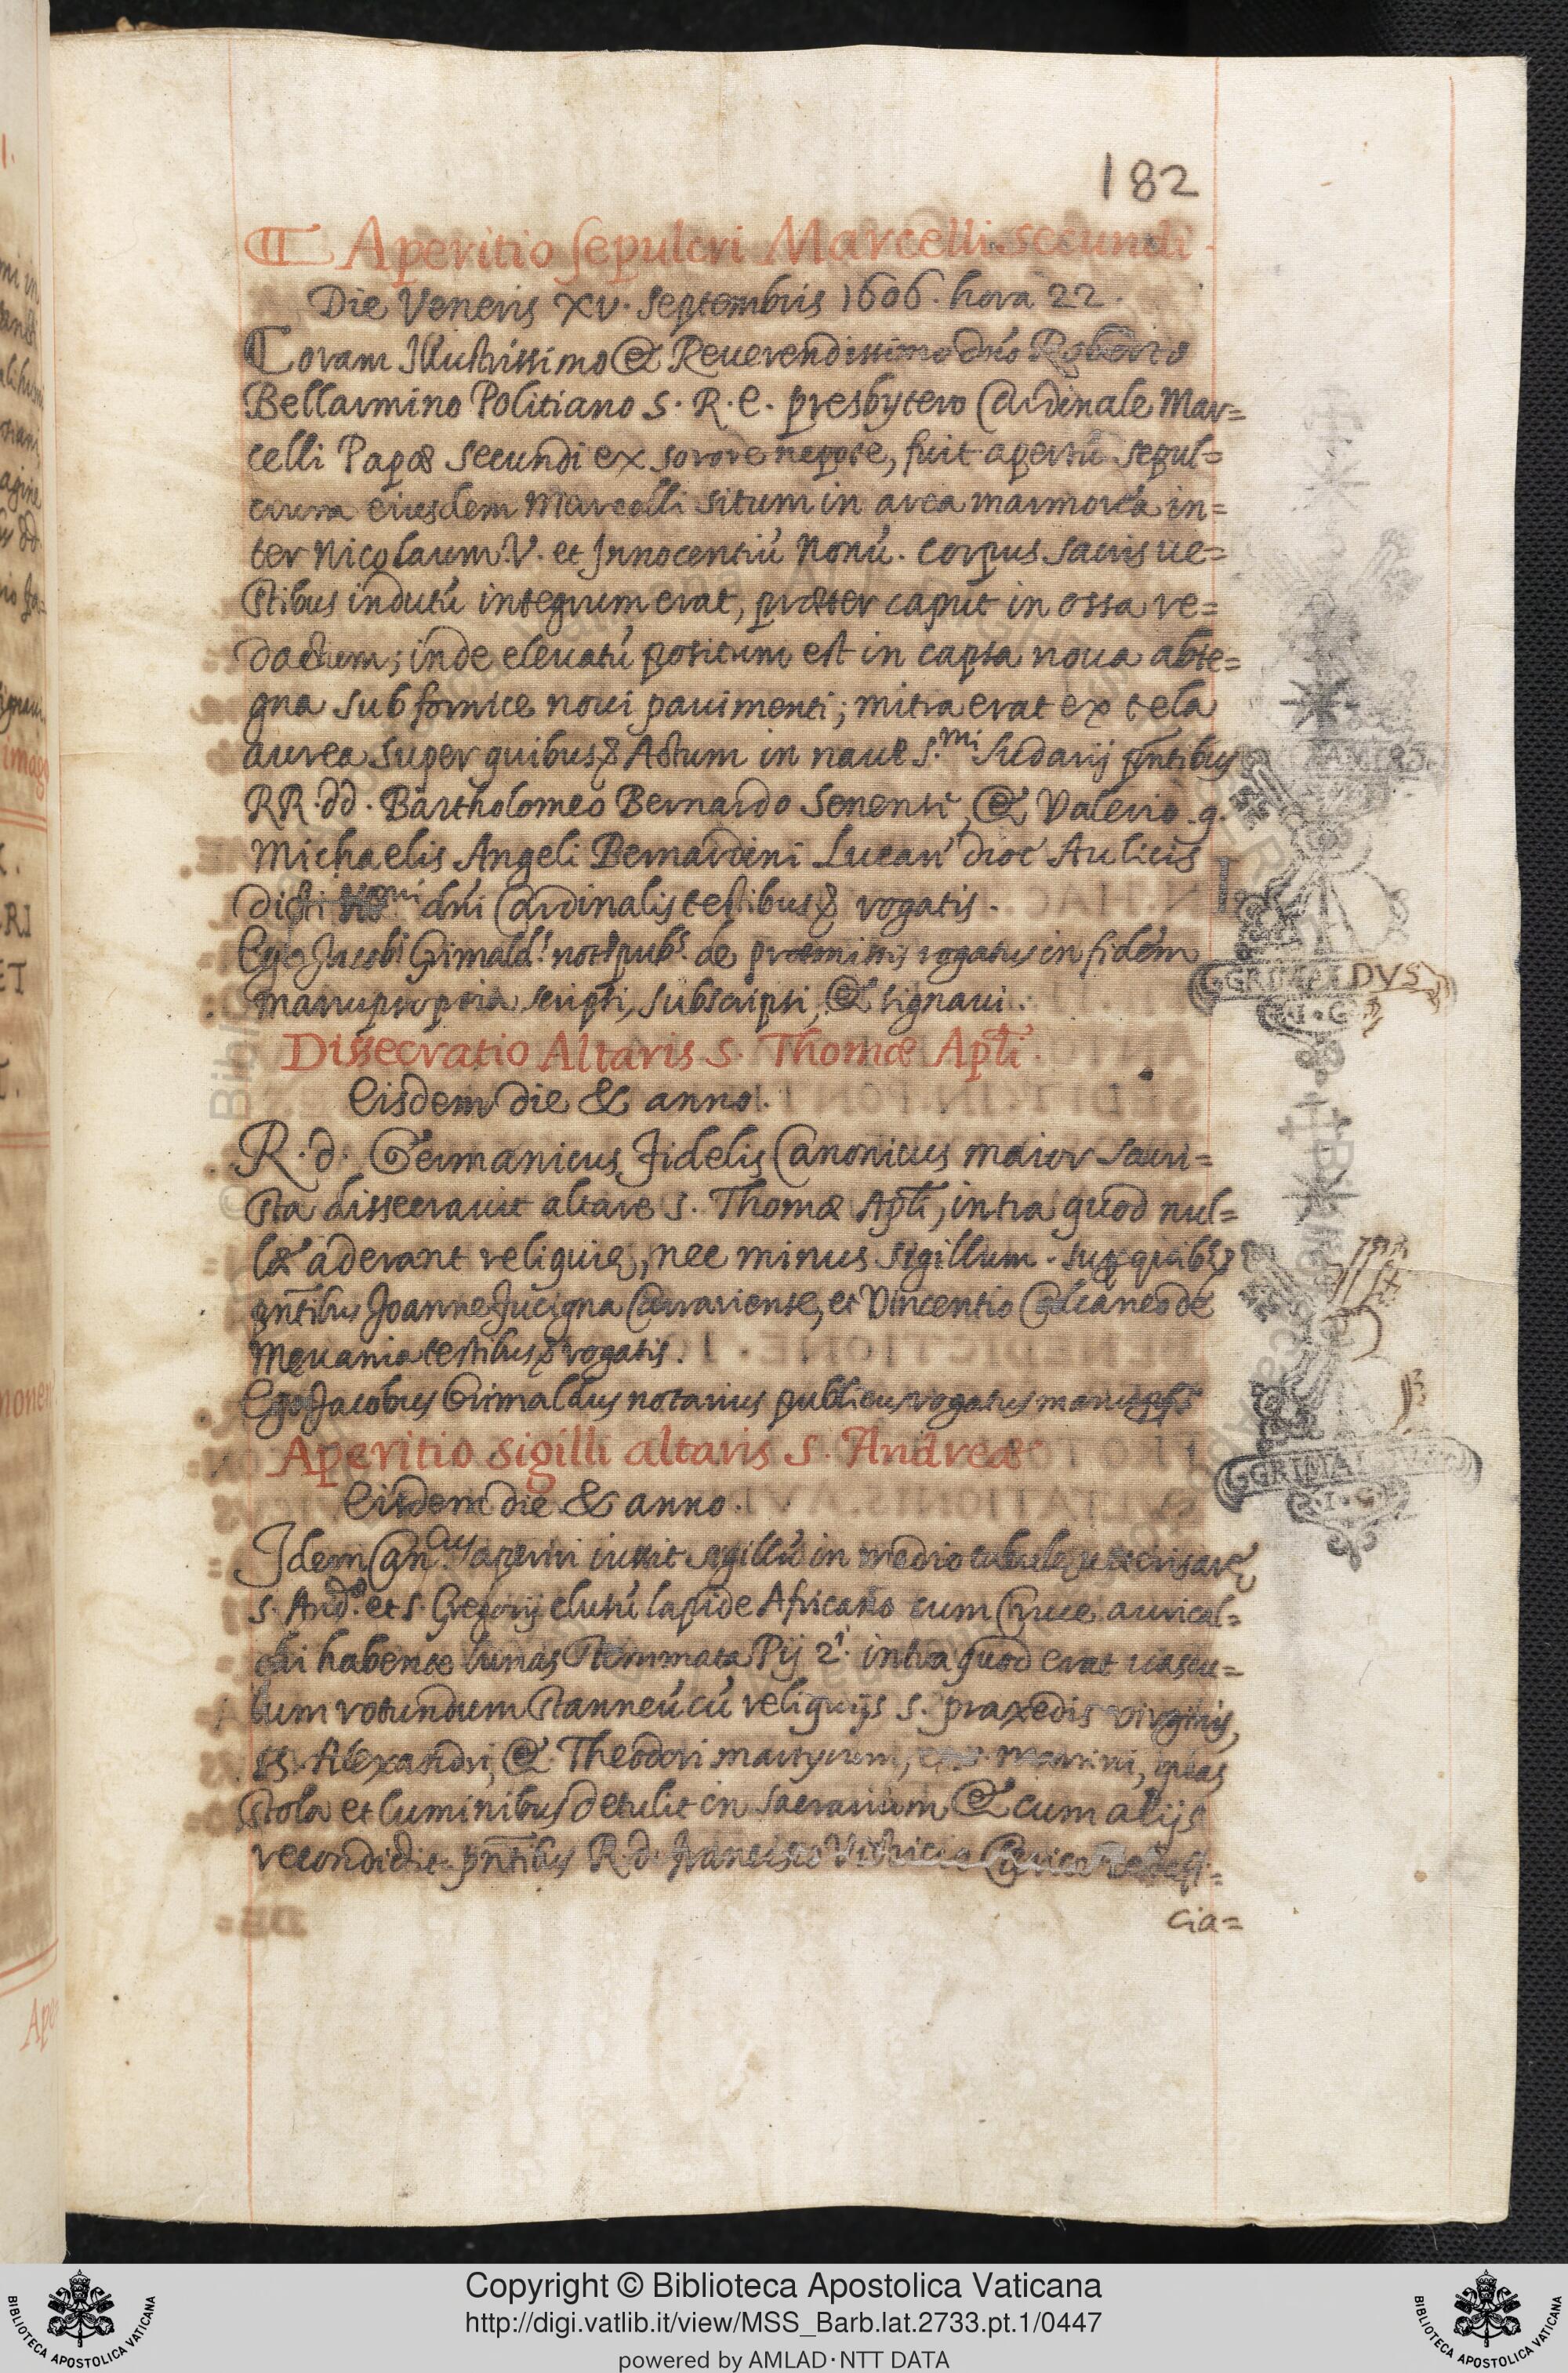 182
Aperitio sepulcri Marcelli secundi.
Die Veneris XV. Septembris 1606. hora 22.
Coram Illustrissimo & Reuerendissimo dno Roberto
Bellarmino Politiano S. R. E. presbytero Cardinale Mar=
celli Papæ secundi ex sorore nepote, fuit apertú sepul=
crum eiusdem Marcelli situm in arca marmorea in=
ter Nicolaum V. et Innocentiú Nonú. corpus sacris ue=
stibus indutú integrum erat, præter caput in ossa re=
dactum; inde eleuatú positum est in capsa noua abie=
gna sub fornice noui pauimenti; mitra erat ex tela
aurea super quibus& Actum in naue S.mi Sudarij pntibus
RR. dd. Bartholomeo Bernardo Senensi, & Valerio q.
Michaelis Angeli Bernardini Lucan dioc Aulicis
dicti dni Cardinalis testibus& rogatis.
Ego Jacobs Grimalds nots pubs de præmissis rogatus in fidem
manu propria scripsi, subscripsi, & signaui.
Dissecratio Altaris S. Thomæ Apli.
Eisdem die & anno.
R. d. Germanicus Fidelis Canonicus maior sacri=
sta dissecrauit altare S. Thomæ Apli, intra quod nul=
læ aderant reliquię, nec minus sigillum. sup quibs&
pntibus Joanne Carrariense, et Vincentio Calcaneo de
Meuania testibus& rogatis.
Ego Jacobus Grimaldus notarius publicus rogatus manu
Aperitio sigilli altaris S. Andreæ
Eisdem die & anno.
Idem Can.cus aperiri iussit sigillú in medio
S. And.æ et S. Gregorij clusú lapide Africano cum Cruce aurical=
chi habente lunas stemmata Pij 2i. intra quod erat uascu=
lum rotundum stanneú cú reliquijs S. praxedis virginis,
SS. Alexandri, & Theodori martyrum,
stola et luminibus detulit in sacrarium & cum alijs
recondidit. pntibus R. d. Francisco
cia=
GRIMALDVS
I. G.
GRIMALDVS
I. G.
Copyright © Biblioteca Apostolica Vaticana
http://digi.vatlib.it/view/MSS_Barb.lat.2733.pt.1/0447
powered by AMLAD·NTT DATA
BIBLIOTECA APOSTOLICA VATICANA
BIBLIOTECA APOSTOLICA VATICANA